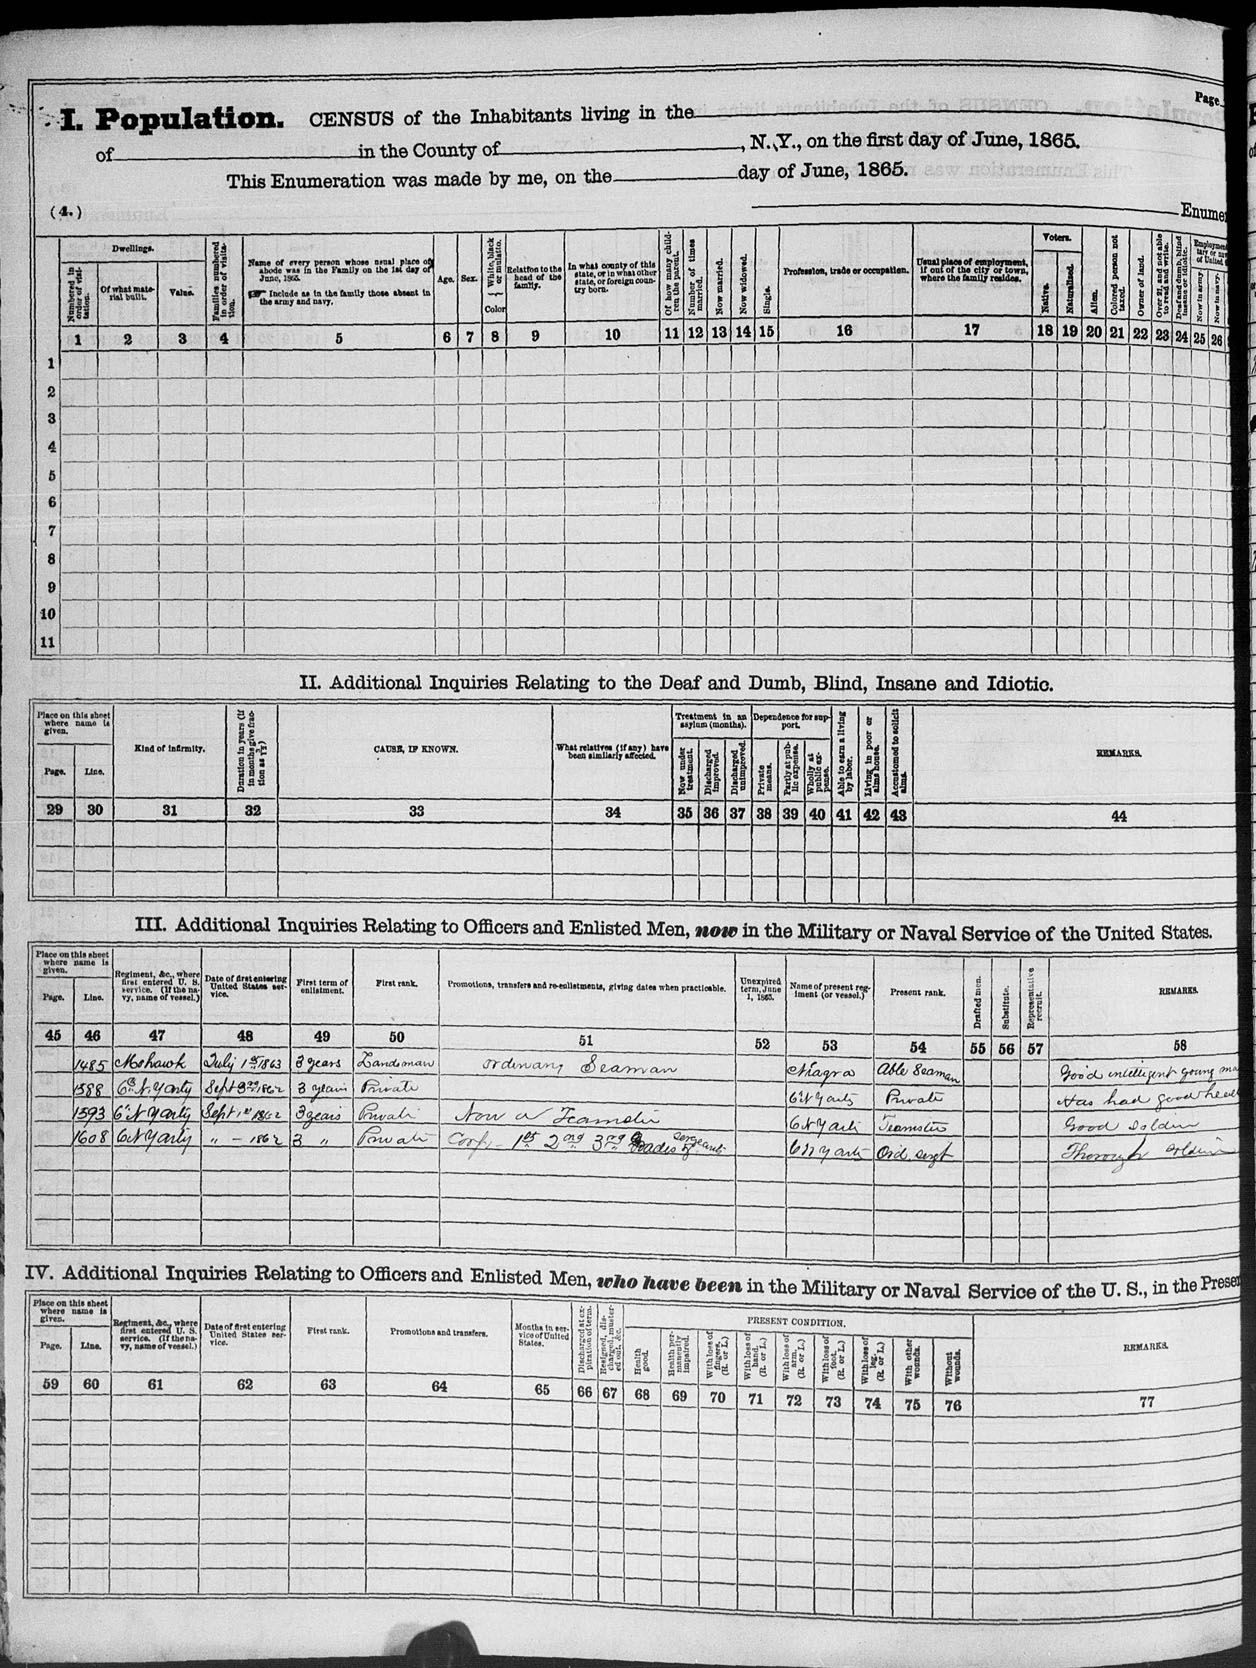 Page
I. Population. CENSUS of the Inhabitants living in the
of in the County of , N. Y., on the first day of June, 1865.
This Enumeration was made by me, on the day of June, 1865.
(4.)
Enumer
Dwellings.
Numbered in order of visitation.
Of what material built.
Value.
Families numbered in order of visitation.
Name of every person whose usual place of abode was in the Family on the 1st day of June, 1865.
☞ Include as in the family those absent in the army and navy.
Age.
Sex.
White, black or mulatto.
Color
Relation to the head of the family.
In what county of this state, or in what other state, or foreign country born.
Of how many children the parent.
Number of times married.
Now married.
Now widowed.
Single.
Profession, trade or occupation.
Usual place of employment, if out of the city or town, where the family resides.
Voters.
Native.
Naturalized.
Alien.
Colored person not taxed.
Owner of land.
Over 21, and not able to read and write.
Deaf and dumb, blind insane or idiotic.
Now in army.
Now in navy.
1 2 3 4 5 6 7 8 9 10 11 12 13 14 15 16 17 18 19 20 21 22 23 24 25 26
1
2
3
4
5
6
7
8
9
10
11
II. Additional Inquiries Relating to the Deaf and Dumb, Blind, Insane and Idiotic.
Place on this sheet where name is given.
Page.
Line.
Kind of infirmity.
Duration in years (if in months give fraction as 7/12)
CAUSE, IF KNOWN.
What relatives (if any) have been similarly affected.
Treatment in an asylum (months).
Now under treatment.
Discharged improved.
Discharged unimproved.
Dependence for support.
Private means.
Partly at public expense.
Wholly at public expense.
Able to earn a living by labor.
Living in poor or alms house.
Accustomed to solicit alms.
REMARKS.
29 30 31 32 33 34 35 36 37 38 39 40 41 42 43 44
III. Additional Inquiries Relating to Officers and Enlisted Men, now in the Military or Naval Service of the United States.
Place on this sheet where name is given.
Page.
Line.
Regiment, &c., where first entered U. S. service. (If the navy, name of vessel.)
Date of first entering United States service.
First term of enlistment.
First rank.
Promotions, transfers and re-enlistments, giving dates when practicable.
Unexpired term, June 1, 1865.
Name of present regiment (or vessel.)
Present rank.
Drafted men.
Substitute.
Representative recruit.
REMARKS.
45 46 47 48 49 50 51 52 53 54 55 56 57 58
1485 Mohawk July 1st 1863 3 years Landsman ordinary Seaman Niagra Able Seaman Good intelligent young ma
1588 6th N.Y arty Sept 3rd 1862 3 years Private 6 N Y arty Private Has had good heal
1593 6th N Y arty Sept 1st 1862 3 years Private Now a Teamster 6 N Y arti Teamster Good soldier
1608 6 N Y arty " – 1862 3 " Private Corp. 1st 2nd 3rd Grades of sergeant 6 N Y arti Ord. sergt Thorough soldier
IV. Additional Inquiries Relating to Officers and Enlisted Men, who have been in the Military or Naval Service of the U. S., in the Presen
Place on this sheet where name is given.
Page.
Line.
Regiment, &c., where first entered U. S. service. (If the navy, name of vessel.)
Date of first entering United States service.
First rank.
Promotions and transfers.
Months in service of United States.
Discharged at expiration of term.
Resigned, discharged, mustered out, &c.
PRESENT CONDITION.
Health good.
Health permanently impaired.
With loss of fingers. (R. or L.)
With loss of hand. (R. or L.)
With loss of arm. (R. or L.)
With loss of foot. (R. or L.)
With loss of leg. (R. or L.)
With other wounds.
Without wounds.
REMARKS.
59 60 61 62 63 64 65 66 67 68 69 70 71 72 73 74 75 76 77